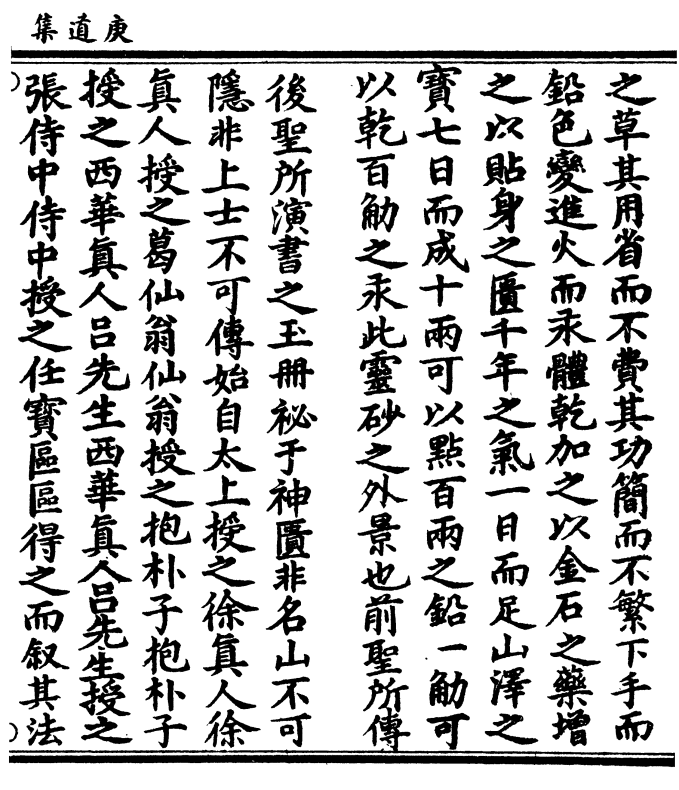 庚道集
之草其用省而不費其功簡而不繁下手而
鉛色變進火而汞體乾加之以金石之藥增
之以貼身之匱千年之氣一日而足山澤之
寶七日而成十兩可以點百兩之鉛一觔可
以乾百觔之汞此靈砂之外景也前聖所傳
後聖所演書之玉冊祕于神匱非名山不可
隱非上士不可傳始自太上授之徐眞人徐
眞人授之葛仙翁仙翁授之抱朴子抱朴子
授之西華眞人呂先生西華眞人呂先生授之
張侍中侍中授之任寶區區得之而叙其法